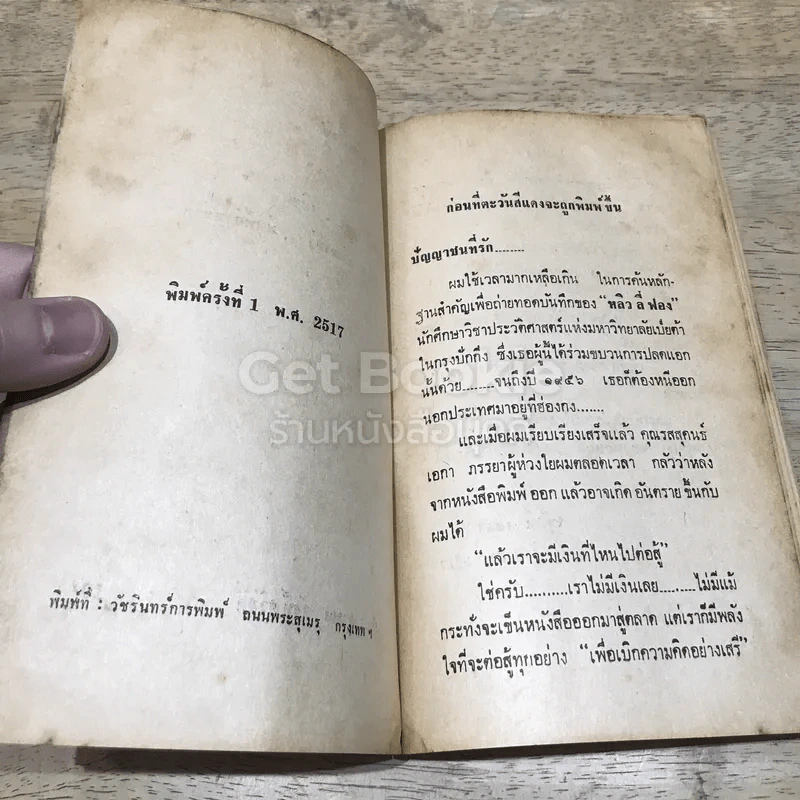 พิมพ์ครั้งที่ 1 พ.ศ. 2517
พิมพ์ที่ : วัชรินทร์การพิมพ์ ถนนพระสุเมรุ กรุงเทพ ฯ
ก่อนที่ตะวันสีแดงจะถูกพิมพ์ขึ้น
ปัญญาชนที่รัก........
ผมใช้เวลามากเหลือเกิน ในการค้นหลัก-
ฐานสำคัญเพื่อถ่ายทอดบันทึกของ "หลิว ลี่ ฟอง"
นักศึกษาวิชาประวัติศาสตร์แห่งมหาวิทยาลัยเบ่ยต้า
ในกรุงปักกิ่ง ซึ่งเธอผู้นี้ได้ร่วมขบวนการปลดแอก
นั้นด้วย........จนถึงปี ๑๙๕๖ เธอก็ต้องหนีออก
นอกประเทศมาอยู่ที่ฮ่องกง.......
และเมื่อผมเรียบเรียงเสร็จแล้ว คุณรสสุคนธ์
เอกา ภรรยาผู้ห่วงใยผมตลอดเวลา กลัวว่าหลัง
จากหนังสือพิมพ์ ออก แล้วอาจเกิด อันตราย ขึ้นกับ
ผมได้
"แล้วเราจะมีเงินที่ไหนไปต่อสู้"
ใช่ครับ..........เราไม่มีเงินเลย.........ไม่มีแม้
กระทั่งจะเข็นหนังสือออกมาสู่ตลาด แต่เราก็มีพลัง
ใจที่จะต่อสู้ทุกอย่าง "เพื่อเบิกความคิดอย่างเสรี"
Get Bookie
ร้านหนังสือบุคคี